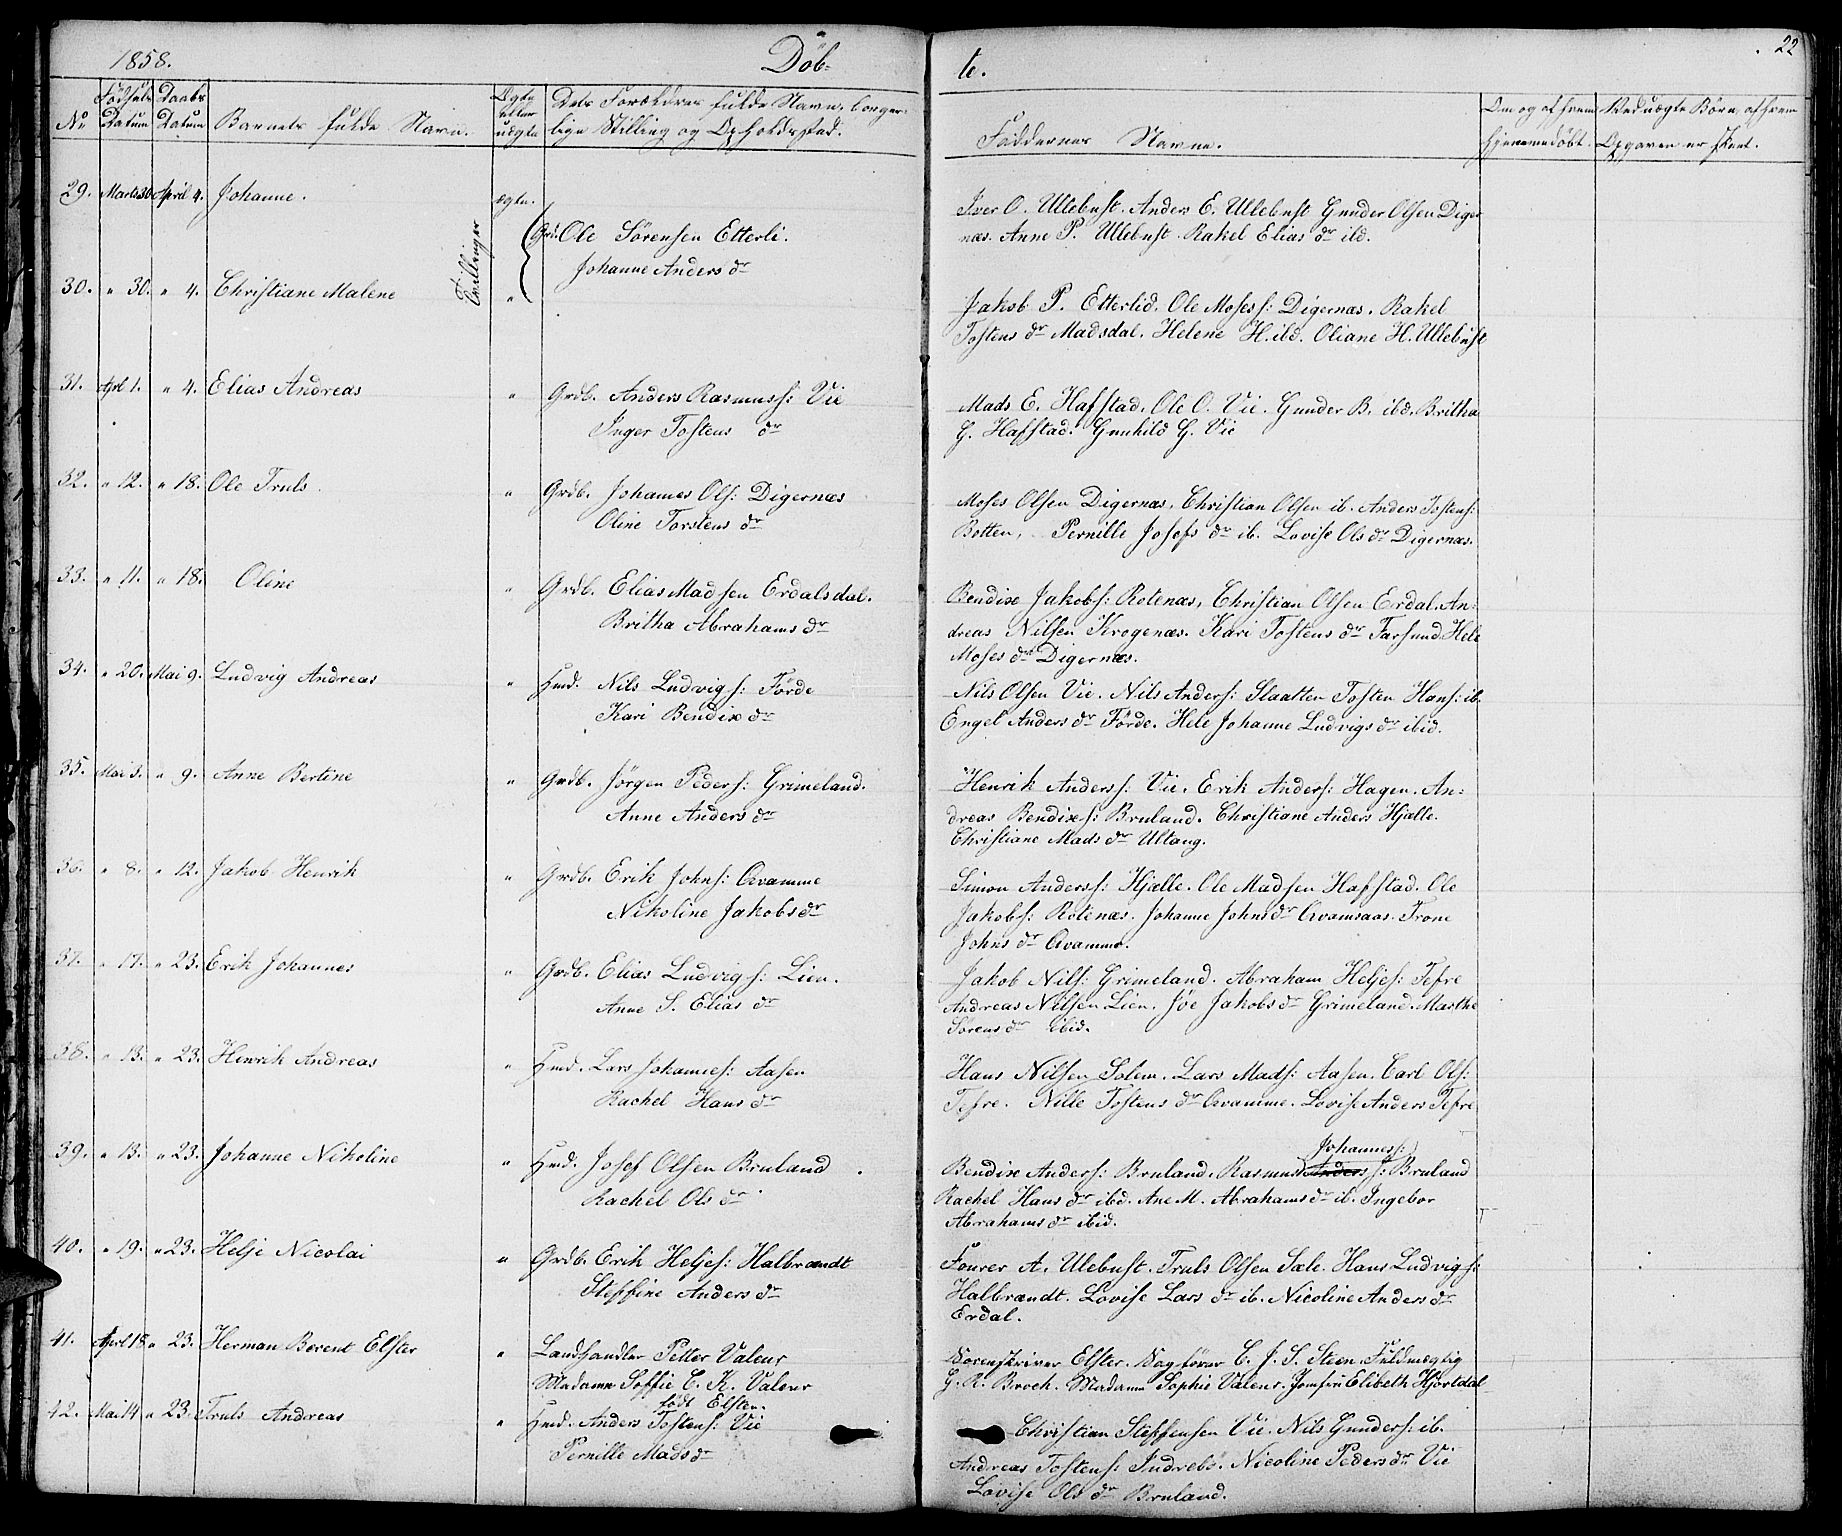 1858. Döb- te. 22
No Födsels Datum Daabs Datum Barnets fulde Navn. Ægte eller uægte Dets Forældres fulde Navn, borger-
lige Stilling og Opholdssted. Faddernes Navne. Om og af hvem hjemmedöbt. Ved uægte Börn, af hvem Opgaven er skeet.
29. Marts 30 April 4. Johanne. ægte. Tvillinger
Grd. Ole Sörensen Etterli.
Johanne Anders dr
Iver O. Ullebust. Anders E. Ullebust Gunder Olsen Diger
næs. Anne P. Ullebust. Rakel Elias dr ibd.
30. " 30. " 4. Christiane Malene "
Jakob P. Etterlid. Ole Moses s: Digernæs. Rakel
Tostens dr Madsdal. Helene H. ibd. Oliane H. Ullebust
31. Apl 1. " 4. Elias Andreas " Grdb. Anders Rasmus s: Vie
Inger Tostens dr
Mads E. Hafstad. Ole O. Vie. Gunder B. ibd. Britha
G. Hafstad. Gunhild G. Vie
32. " 12. " 18. Ole Truls. " Grdb. Johannes Ols: Digernæs
Oline Torstens dr
Moses Olsen Digernæs, Christian Olsen ib. Anders Tostens:
Botten, Pernille Josefs dr ib. Lovise Ols dr Digernæs.
33. " 11. " 18. Oline " Grdb. Elias Madsen Erdalsdal.
Britha Abrahams dr
Bendix Jakobs: Rotenæs, Christian Olsen Erdal. An-
dreas Nilsen Krogenæs. Kari Tostens dr Farsund Hele
Moses dr Digernæs.
34. " 20. Mai 9. Ludvig Andreas " Hmd. Nils Ludvig s: Förde
Kari Bendix dr
Nils Olsen Vie. Nils Anders: Slaatten Tosten Hans: ib.
Engel Anders dr Förde. Hele Johanne Ludvigs dr ibid.
35. Mai 3. " 9. Anne Bertine " Grdb. Jörgen Peders: Grimeland.
Anne Anders dr
Henrik Anders s: Vie. Erik Anders: Hagen. An-
dreas Bendix s: Bruland. Christiane Anders Hjælle.
Christiane Mads dr Ultang.
36. " 8. " 12. Jakob Henrik " Grdb. Erik Johns: Qvamme
Nikoline Jakobs dr
Simon Anders s: Hjælle. Ole Madsen Hafstad. Ole
Jakobs: Rotenæs. Johanne Johns dr Qvamsaas. Trone
Johns dr Qvamme.
37. " 17. " 23. Erik Johannes " Grdb. Elias Ludvig s: Lien.
Anne S. Elias dr
Jakob Nils: Grimeland. Abraham Heljes: Tefre
Andreas Nilsen Lien. Sie Jakobs dr Grimeland. Marthe
Sörens dr ibid.
38. " 13. " 23. Henrik Andreas " Hmd. Lars Johannes: Aasen
Rachel Hans dr
Hans Nilsen Solem. Lars Mads: Aasen. Carl Ols:
Tefre. Nille Tostens dr Qvamme. Lovise Anders Tefre
39. " 13. " 23. Johanne Nikoline " Hmd. Josef Olsen Bruland
Rachel Ols dr
Johannes:
Bendix Anders: Bruland. Rasmus Anders s: Bruland
Rachel Hans dr ibd. Ane M. Abrahams dr ib. Ingebor
Abrahams dr ibid.
40. " 19. " 23. Helje Nicolai " Grdb. Erik Heljes: Halbrændt
Steffine Anders dr
Fourer A. Ulebust. Truls Olsen Sæle. Hans Ludvig s:
Halbrændt. Lovise Lars dr ib. Nicoline Anders dr
Erdal.
41. Aprl 18 " 23. Herman Berent Elster " Landhandler Petter Valeur
Madame Soffie C. K. Valeur
född Elster.
Sorenskriver Elster. Sagförer C. J. S. Steen. Fuldmægtig
G. R. Broch. Madame Sophie Valeur. Jomfru Elibeth Hjortdal
42. Mai 14 " 23. Truls Andreas " Hmd. Anders Tostens: Vie
Pernille Mads dr
Christian Steffensen Vie. Nils Gunders: ib.
Andreas Tostens: Indrebö. Nicoline Peders dr Vie
Lovise Ols dr Bruland.